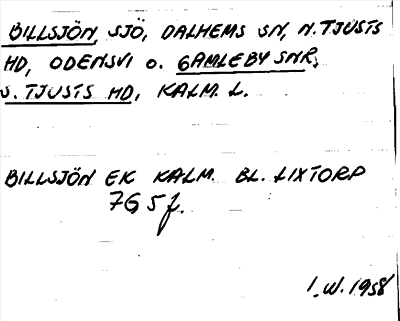 BILLSJÖN, SJÖ, DALHEMS SN, N. TJUSTS
HD, ODENSVI O. GAMLEBY SNR,
S. TJUSTS HD, KALM. L.
BILLSJÖN EK KALM. BL. LIXTORP
7G 5f.
I.W. 1958